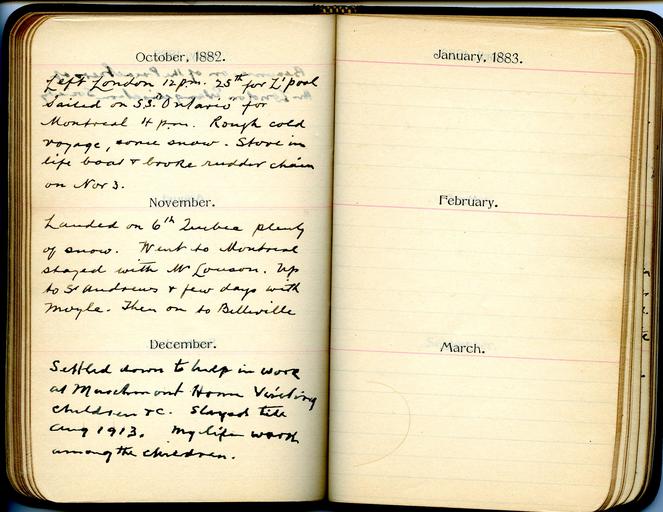 October, 1882.
Left London 12 p.m. 25th for L'pool
Sailed on S.S. Ontario for
Montreal 4 p.m. Rough cold
voyage, some snow. Stove in
life boat & broke rudder chain
on Nov 3.
November.
Landed on 6th Quebec plenty
of snow. Went to Montreal
stayed with Mr. Up
to St Andrews & few days with
Moyle. Then on to Belleville
December.
Settled down to help in work
at Marchmont Home Visiting
children &c. Stayed till
Aug 1913. My life work
among the children.
January, 1883.
February.
March.